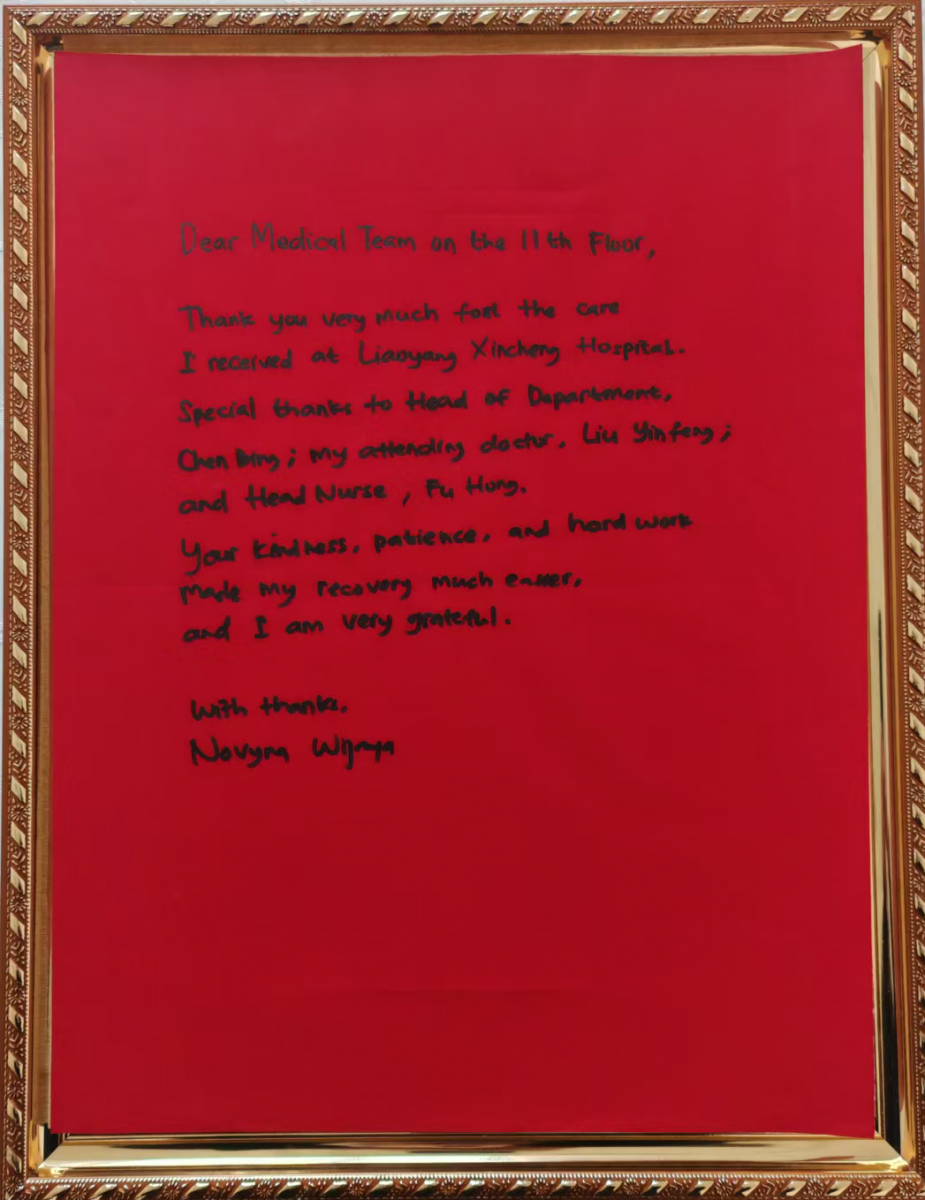 Dear Medical Team on the 11th Floor,
Thank you very much for the care
I received at Liaoyang Xincheng Hospital.
Special thanks to Head of Department,
Chen Bing; my attending doctor, Liu Yinfeng;
and Head Nurse, Fu Hong.
Your kindness, patience, and hard work
made my recovery much easier,
and I am very grateful.
With thanks,
Novyna Wijaya